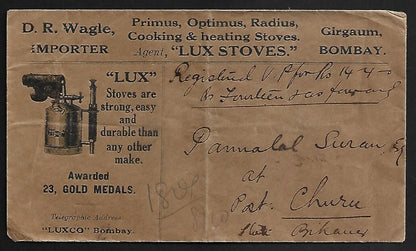 D. R. Wagle,
IMPORTER
Primus, Optimus, Radius,
Cooking & heating Stoves.
Agent, "LUX STOVES."
Girgaum,
BOMBAY.
"LUX"
Stoves are
strong, easy
and
durable than
any other
make.
Awarded
23, GOLD MEDALS.
Telegraphic Address
"LUXCO" Bombay.
Registered V. P. for Rs 14-4-
Rs Fourteen & as four only
Pannalal Surana
at
Post. Churu